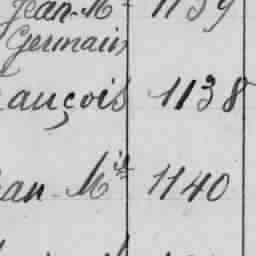 Jean-M^l 1139
Germain
ançois 1138
an-M^il 1140